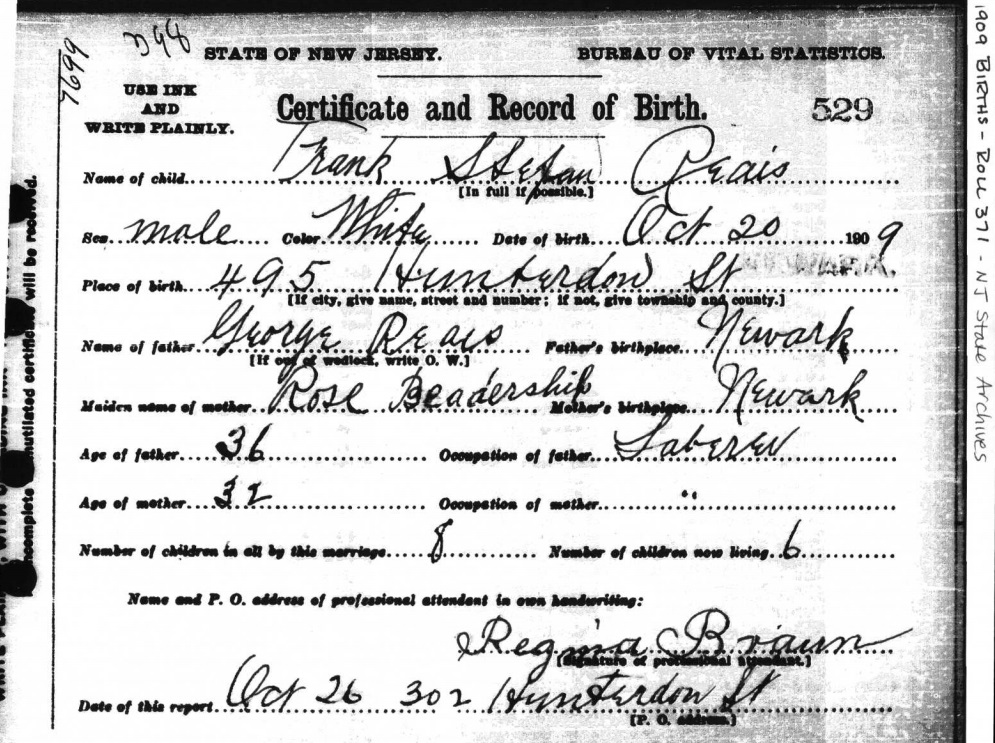 7699
D98
STATE OF NEW JERSEY. BUREAU OF VITAL STATISTICS.
USE INK
AND
WRITE PLAINLY.
Certificate and Record of Birth. 529
Name of child Frank Stefan Reais
[In full if possible.]
Sex male Color White Date of birth Oct 20 1909
Place of birth 495 Hunterdon St NEWARK.
[If city, give name, street and number; if not, give township and county.]
Name of father George Reais Father's birthplace Newark
[If out of wedlock, write O. W.]
Maiden name of mother Rose Beadership Mother's birthplace Newark
Age of father 36 Occupation of father Laberer
Age of mother 32 Occupation of mother "
Number of children in all by this marriage 8 Number of children now living 6
Name and P. O. address of professional attendant in own handwriting:
Regina Braun
[Signature of professional attendant.]
Date of this report Oct 26 302 Hunterdon St
[P. O. address.]
Incomplete mutilated certificate will be received.
1909 BIRTHS - ROLL 371 - NJ State Archives